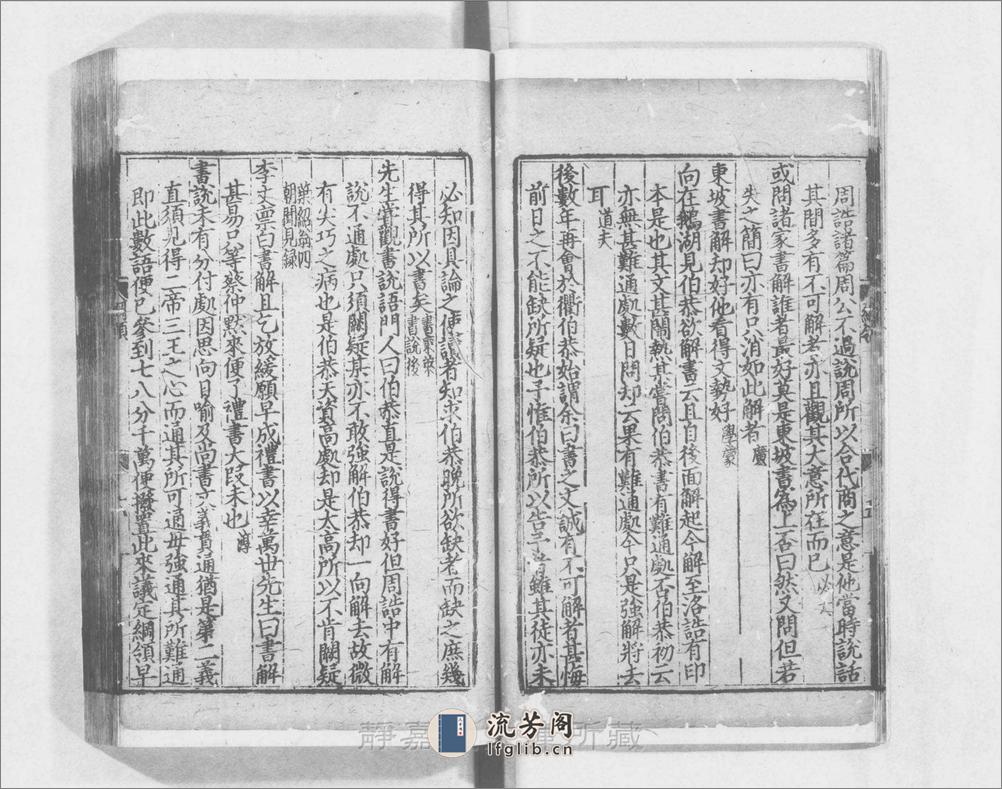 周誥諸篇周公不過說周所以合代商之意是他當時說話
其間多有不可解者亦且觀其大意所在而已 必大
或問諸家書解誰者最好莫是東坡書為上否曰然又問但若
失之簡曰亦有只消如此解者 廣
東坡書解却好他看得文勢好 學蒙
向在鵝湖見伯恭欲解書云且自後面解起今解至洛誥有印
本是也其文甚閙熱某嘗問伯恭書有難通處否伯恭初云
亦無甚難通處數日問却云果有難通處今只是強解將去
耳 道夫
後數年再會於衢伯恭始謂余曰書之文誠有不可解者甚悔
前日之不能缺所疑也予惟伯恭所以告 者雖其徒亦未
必知因具論之使讀者知求伯恭晚所欲缺者而缺之庶幾
得其所以書矣 書東萊書說後
先生嘗觀書說語門人曰伯恭直是說得書好但周誥中有解
說不通處只須闕疑某亦不敢強解伯恭却一向解去故微
有尖巧之病也是伯恭天資高處却是太高所以不肯闕疑
葉紹翁四朝聞見錄
李文禀曰書解且乞放緩願早成禮書以幸萬世先生曰書解
甚易只等蔡仲默來便了禮書大段未也 淳
書說未有分付處因思向日喻及尚書文義貫通猶是第二義
直須見得二帝三王之心而通其所可通毋強通其所難通
即此數語便已參到七八分千萬便撥置此來議定綱領早
靜嘉 所藏
流芳阁
lfglib.cn